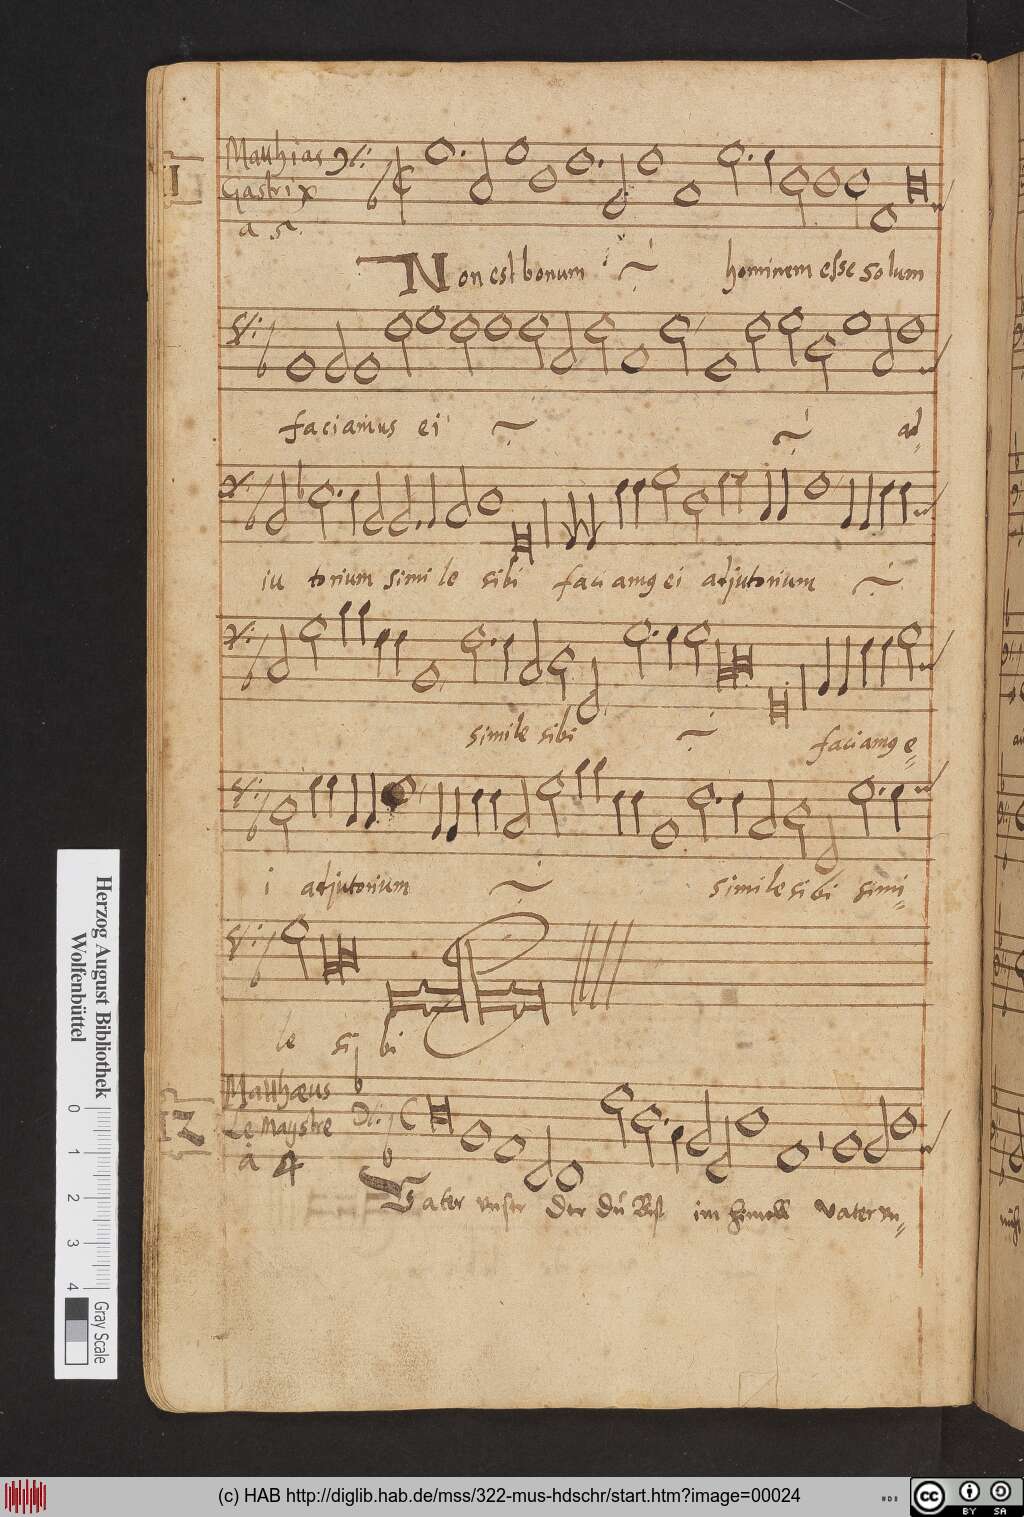 Matthias
Gastrix
a 5.
Non est bonum hominem esse solum
faciamus ei ad-
iu torium simile sibi faciamg ei adjutorium
simile sibi faciamg e-
i adjutorium simile sibi simi-
le si bi
Matthæus
Le Maystre
à 4
Vater unser Der du Bist im himell Vater un-
Herzog August Bibliothek
Wolfenbüttel
0 1 2 3 4
Gray Scale
(c) HAB http://diglib.hab.de/mss/322-mus-hdschr/start.htm?image=00024
cc BY SA